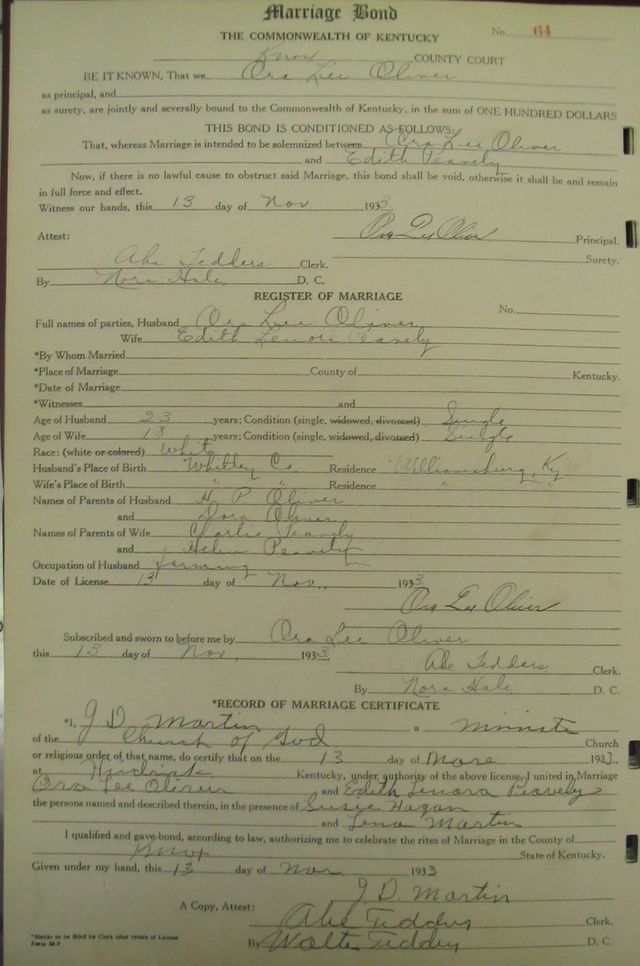 Marriage Bond
No. 64
THE COMMONWEALTH OF KENTUCKY
Knox COUNTY COURT
BE IT KNOWN, That we Ora Lee Oliver
as principal, and
as surety, are jointly and severally bound to the Commonwealth of Kentucky, in the sum of ONE HUNDRED DOLLARS
THIS BOND IS CONDITIONED AS FOLLOWS:
That, whereas Marriage is intended to be solemnized between Ora Lee Oliver
and Edith Peavely
Now, if there is no lawful cause to obstruct said Marriage, this bond shall be void, otherwise it shall be and remain
in full force and effect.
Witness our hands, this 13 day of Nov 1933
Attest: Ora Lee Oliver Principal.
Abe Tedders Clerk. Surety.
By Nora Hale D. C.
REGISTER OF MARRIAGE
No.
Full names of parties, Husband Ora Lee Oliver
Wife Edith Lenora Peavely
*By Whom Married
*Place of Marriage County of Kentucky.
*Date of Marriage
*Witnesses and
Age of Husband 23 years; Condition (single, widowed, divorced) Single
Age of Wife 18 years; Condition (single, widowed, divorced) Single
Race: (white or colored) White
Husband's Place of Birth Whitley Co. Residence Williamsburg, Ky
Wife's Place of Birth " " Residence " "
Names of Parents of Husband H. P. Oliver
and Dora Oliver
Names of Parents of Wife Charlie Peavely
and Helen Peavely
Occupation of Husband farming
Date of License 13 day of Nov., 1933
Ora Lee Oliver
Subscribed and sworn to before me by Ora Lee Oliver
this 13 day of Nov, 1933
Abe Tedders Clerk.
By Nora Hale D. C.
*RECORD OF MARRIAGE CERTIFICATE
*I, J D Martin a Ministe
of the Church of God Church
or religious order of that name, do certify that on the 13 day of 1933.
at Kentucky, under authority of the above license, I united in Marriage
Ora Lee Oliver and Edith Lenora Peavely
the persons named and described therein, in the presence of Susie Hagan
and Lena Martin
I qualified and gave bond, according to law, authorizing me to celebrate the rites of Marriage in the County of
Knox State of Kentucky.
Given under my hand, this 13 day of Nov 1933
J D. Martin
A Copy, Attest: Abe Tedders Clerk.
By Walter Tedders D. C.
*Blanks to be filled by Clerk after return of License
Form M-7